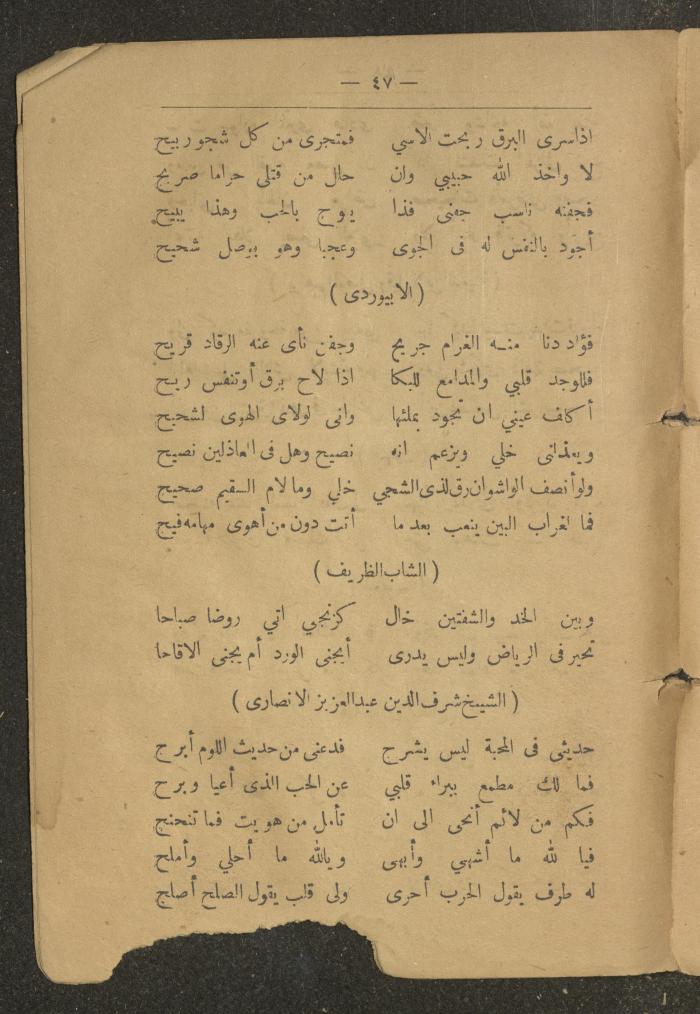 — ٤٧ —
اذاسرى البرق ربحت الاسي فمتجرى من كل شجو ربيح
لا واخذ الله حبيبي وان حال من قتلى حراما صريح
فجفنه ناسب جفنى فذا يوح بالحب وهذا يبيح
أجود بالنفس له فى الجوى وعجبا وهو بوصل شحيح
( الابيوردى )
فؤاد دنا منه الغرام جريح وجفن نأى عنه الرقاد قريح
فللوجد قلبي والمدامع للبكا اذا لاح برق أوتنفس ريح
أكاف عيني ان تجود بملئها وانى لولاى الهوى لشحيح
ويعذلنى خلي ويزعم انه نصيح وهل فى العاذلين نصيح
ولوأنصف الواشوان رق لذى الشجي خلي ومالام السقيم صحيح
فما لغراب البين ينعب بعد ما أتت دون من أهوى مهامه فيح
( الشاب الظريف )
وبين الخد والشفتين خال كزنجي اتي روضا صباحا
تحير فى الرياض وليس يدرى أيجنى الورد أم يجنى الاقاحا
( الشيخ شرف الدين عبدالعزيز الانصارى )
حديثى فى المحبة ليس يشرح فدعنى من حديث اللوم أبرح
فما لك مطمع ببراء قلبي عن الحب الذى أعيا وبرح
فكم من لائم أنحى الى ان تأمل من هويت فما تنحنح
فيا لله ما أشهي وأبهى ويالله ما أحلي وأملح
له طرف يقول الحرب أحرى ولى قلب يقول الصلح أصلح